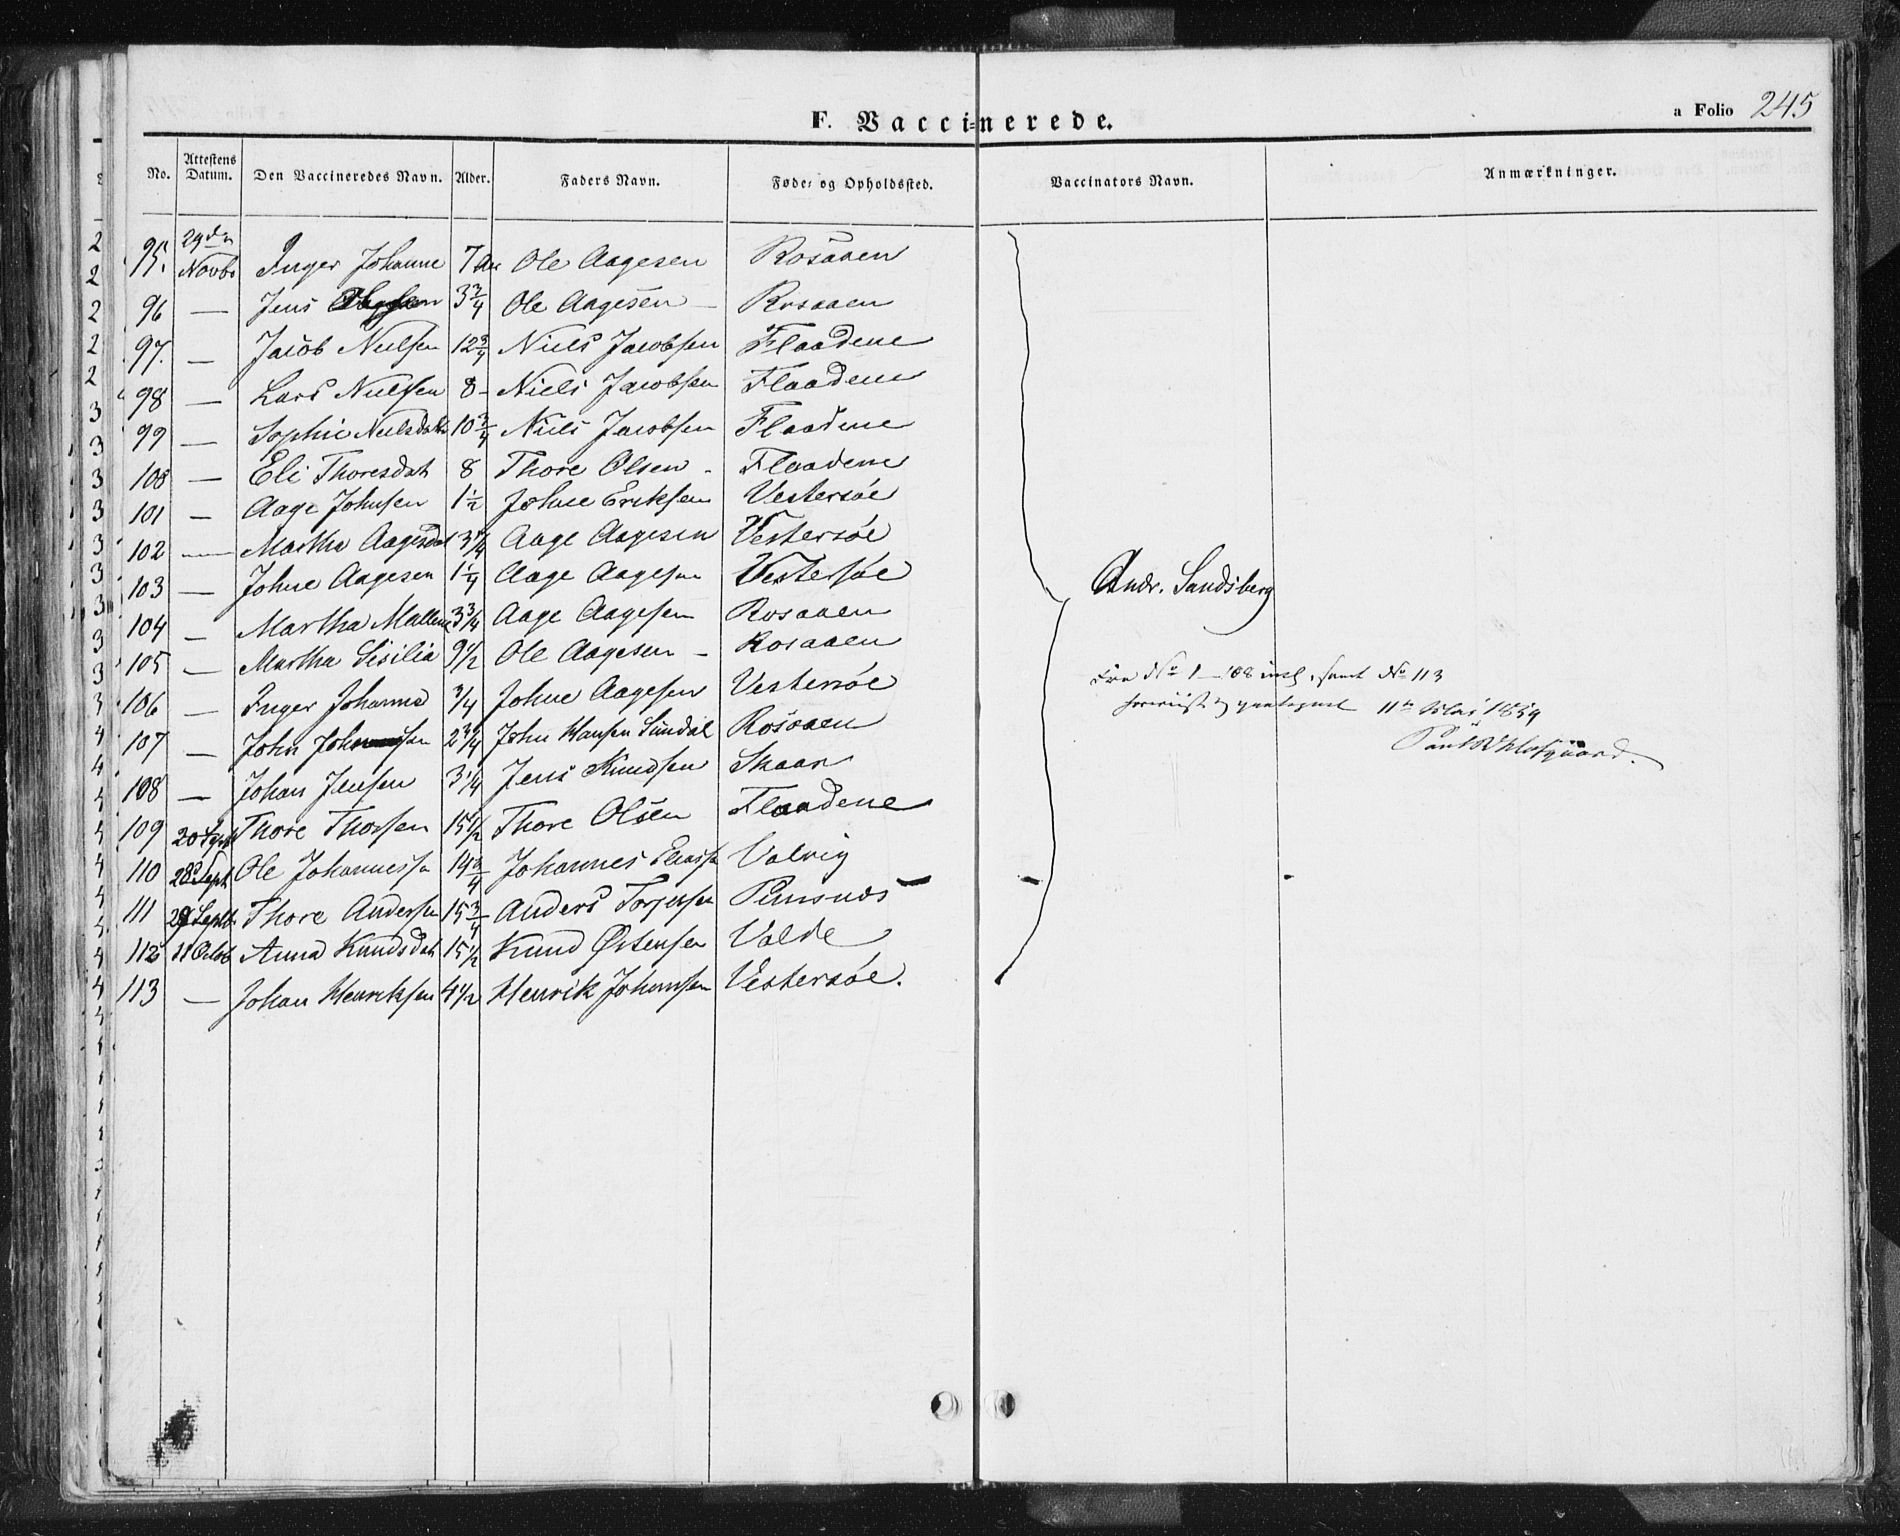 F. Vaccinerede.
a Folio 245
No. Attestens Datum. Den Vaccineredes Navn. Alder. Faders Navn. Føde- og Opholdssted. Vaccinators Navn. Anmærkninger.
95. 29de Novb. Inger Johanne 7 Aar Ole Aagesen Rosaaen
96 — Jens 3 3/4 Ole Aagesen — Rosaaen
97. — Jacob Nielsen 12 3/4 Niels Jacobsen Flaadene
98 — Lars Nielsen 8 - Niels Jacobsen Flaadene
99 — Sophie Nielsdatr 10 3/4 Niels Jacobsen Flaadene
100 — Eli Thoresdat 8 Thore Olsen - Flaadene
101 — Aage Johnsen 1 1/2 Johne Eriksen Vestersøe
102 — Martha Aagesdat 3 1/4 Aage Aagesen Vestersøe
103 — Johne Aagesen 1 1/4 Aage Aagesen Vestersøe
104 — Martha Mallene 3 3/4 Aage Aagesen Rosaaen
105 — Martha Sisilia 9 1/2 Ole Aagesen — Rosaaen
106 — Inger Johanna 3/4 Johne Aagesen Vestersøe
107 — John 2 3/4 John Hansen Sundal Rosoaen
108 — Johan Jensen 3 1/4 Jens Knudsen Skaar
109 20 Sept Thore Thorsen 15 1/2 Thore Olsen Flaadene
110 28 Sept Ole Johannessen 14 3/4 Johannes Eliassen Valvig
111 29 Septb. Thore Andersen 15 3/4 Anders Torjersen
112 11 Octob Anna Knudsdatr 15 1/2 Knud Østensen Valde
113 — Johan Henriksen 4 1/2 Henrik Johansen Vestersøe.
Andr. Sandsberg
Fra No 1 — 108 incl, samt No 113
11te Mai 1859